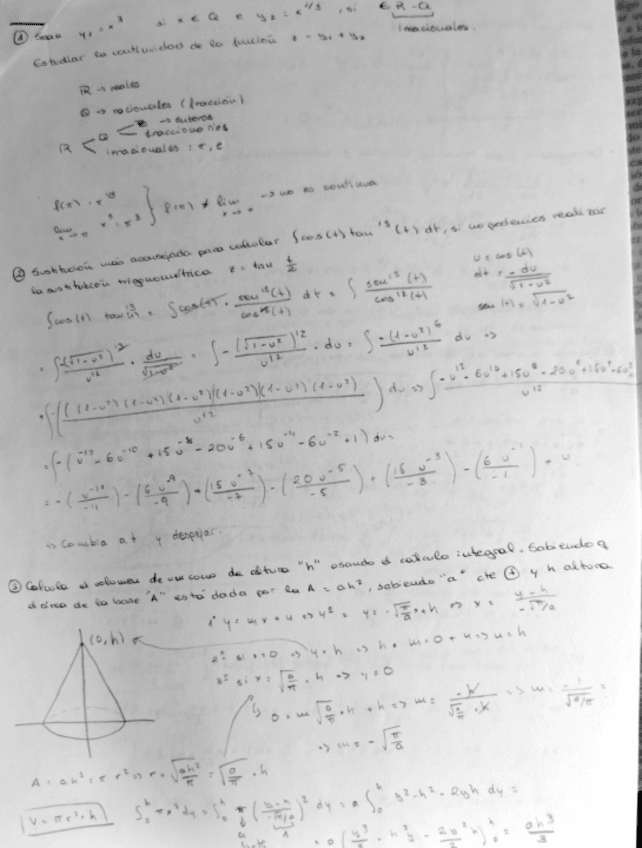 ① Sean y₁ = x³ si x ∈ Q e y₂ = x^1/3, si ∈ R-Q
irracionales.
Estudiar la continuidad de la función z = y₁ + y₂
R → reales
Q → racionales (fracción)
R < Q < Z → enteros
fraccionarios
irracionales: π, e
lim x³ = π³ } f(π) ≠ lim → no es continua
② Sustitución más aconsejada para calcular ∫cos(t) tan¹³(t) dt, si no podemos realizar
la sustitución trigonométrica z = tan t/2
u = cos(t)
dt = -du/√(1-u²)
sen(t) = √(1-u²)
= ∫ -(√(1-u²))¹²/u¹² · du = ∫ -(1-u²)⁶/u¹² du ⇒
= ∫ -(u⁻¹² - 6u⁻¹⁰ + 15u⁻⁸ - 20u⁻⁶ + 15u⁻⁴ - 6u⁻² + 1) du =
= -(u⁻¹¹/-11) - (6u⁻⁹/-9) + (15u⁻⁷/-7) - (20u⁻⁵/-5) + (15u⁻³/-3) - (6u⁻¹/-1) + u
⇒ Cambia a t y despejar.
③ Calcula el volumen de un cono de altura "h" usando el calculo integral. Sabiendo q
el área de la base "A" está dada por la A = ah², sabiendo "a" cte ⊕ y h altura
1º y = mx + n ⇒ y = -√(π/a)·x + h ⇒ x = (y-h)/(-√(π/a))
(0,h)
2º si x=0 ⇒ y=h ⇒ h = m·0 + n ⇒ n=h
3º si x = √(a/π)·h ⇒ y=0
↳ 0 = m√(a/π)·h + h ⇒ m = -h/(√(a/π)·h) ⇒ m = -1/√(a/π) =
⇒ m = -√(π/a)
A = ah² = πr² ⇒ r = √(ah²/π) = √(a/π)·h
V = πr²·h
∫₀ʰ πx²dy = ∫₀ʰ π((y-h)/(-√(π/a)))² dy = a∫₀ʰ y²-h²-2yh dy =
= a(y³/3 - h²y - 2y²h/2)₀ʰ = ah³/3